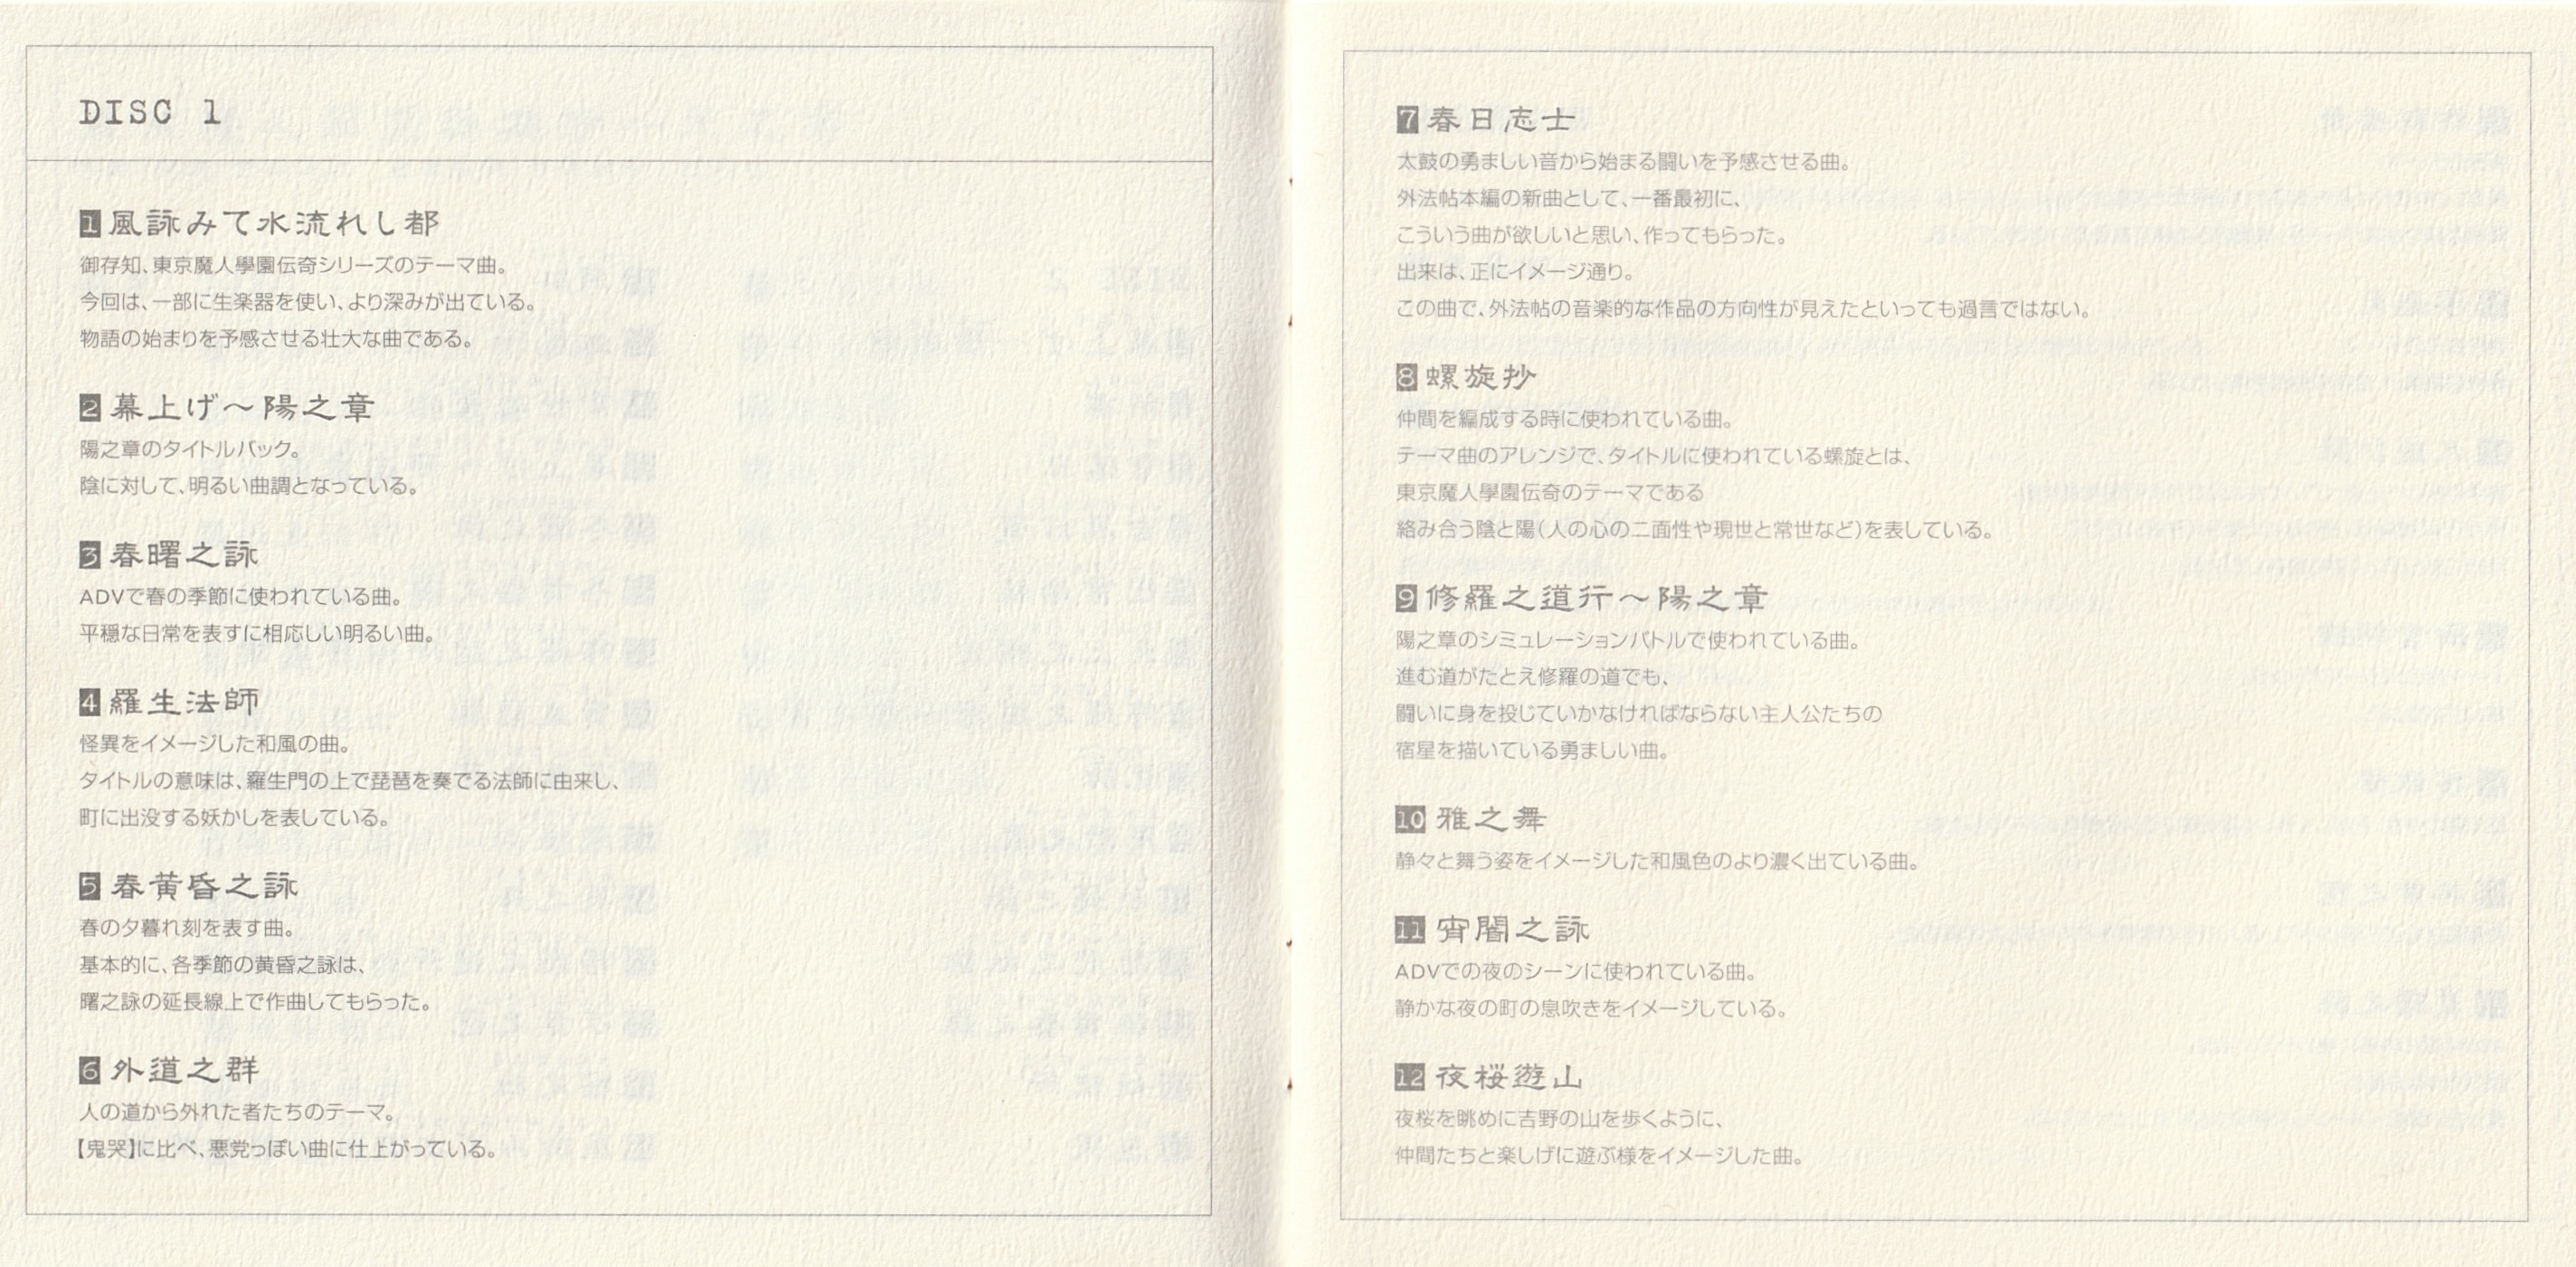 DISC 1
1 風詠みて水流れし都
御存知、東京魔人學園伝奇シリーズのテーマ曲。
今回は、一部に生楽器を使い、より深みが出ている。
物語の始まりを予感させる壮大な曲である。
2 幕上げ〜陽之章
陽之章のタイトルバック。
陰に対して、明るい曲調となっている。
3 春曙之詠
ADVで春の季節に使われている曲。
平穏な日常を表すに相応しい明るい曲。
4 羅生法師
怪異をイメージした和風の曲。
タイトルの意味は、羅生門の上で琵琶を奏でる法師に由来し、
町に出没する妖かしを表している。
5 春黄昏之詠
春の夕暮れ刻を表す曲。
基本的に、各季節の黄昏之詠は、
曙之詠の延長線上で作曲してもらった。
6 外道之群
人の道から外れた者たちのテーマ。
【鬼哭】に比べ、悪党っぽい曲に仕上がっている。
7 春日志士
太鼓の勇ましい音から始まる闘いを予感させる曲。
外法帖本編の新曲として、一番最初に、
こういう曲が欲しいと思い、作ってもらった。
出来は、正にイメージ通り。
この曲で、外法帖の音楽的な作品の方向性が見えたといっても過言ではない。
8 螺旋抄
仲間を編成する時に使われている曲。
テーマ曲のアレンジで、タイトルに使われている螺旋とは、
東京魔人學園伝奇のテーマである
絡み合う陰と陽(人の心の二面性や現世と常世など)を表している。
9 修羅之道行〜陽之章
陽之章のシミュレーションバトルで使われている曲。
進む道がたとえ修羅の道でも、
闘いに身を投じていかなければならない主人公たちの
宿星を描いている勇ましい曲。
10 雅之舞
静々と舞う姿をイメージした和風色のより濃く出ている曲。
11 宵闇之詠
ADVでの夜のシーンに使われている曲。
静かな夜の町の息吹きをイメージしている。
12 夜桜遊山
夜桜を眺めに吉野の山を歩くように、
仲間たちと楽しげに遊ぶ様をイメージした曲。